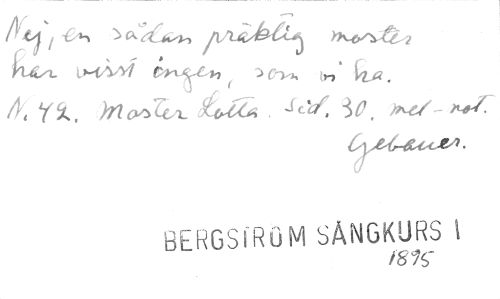 Nej, en sådan präktig moster
har visst ingen, som vi ha.
N. 42. Moster Lotta. Sid. 30. mel-not.
Gebauer.
BERGSTRÖM SÅNGKURS I
1895